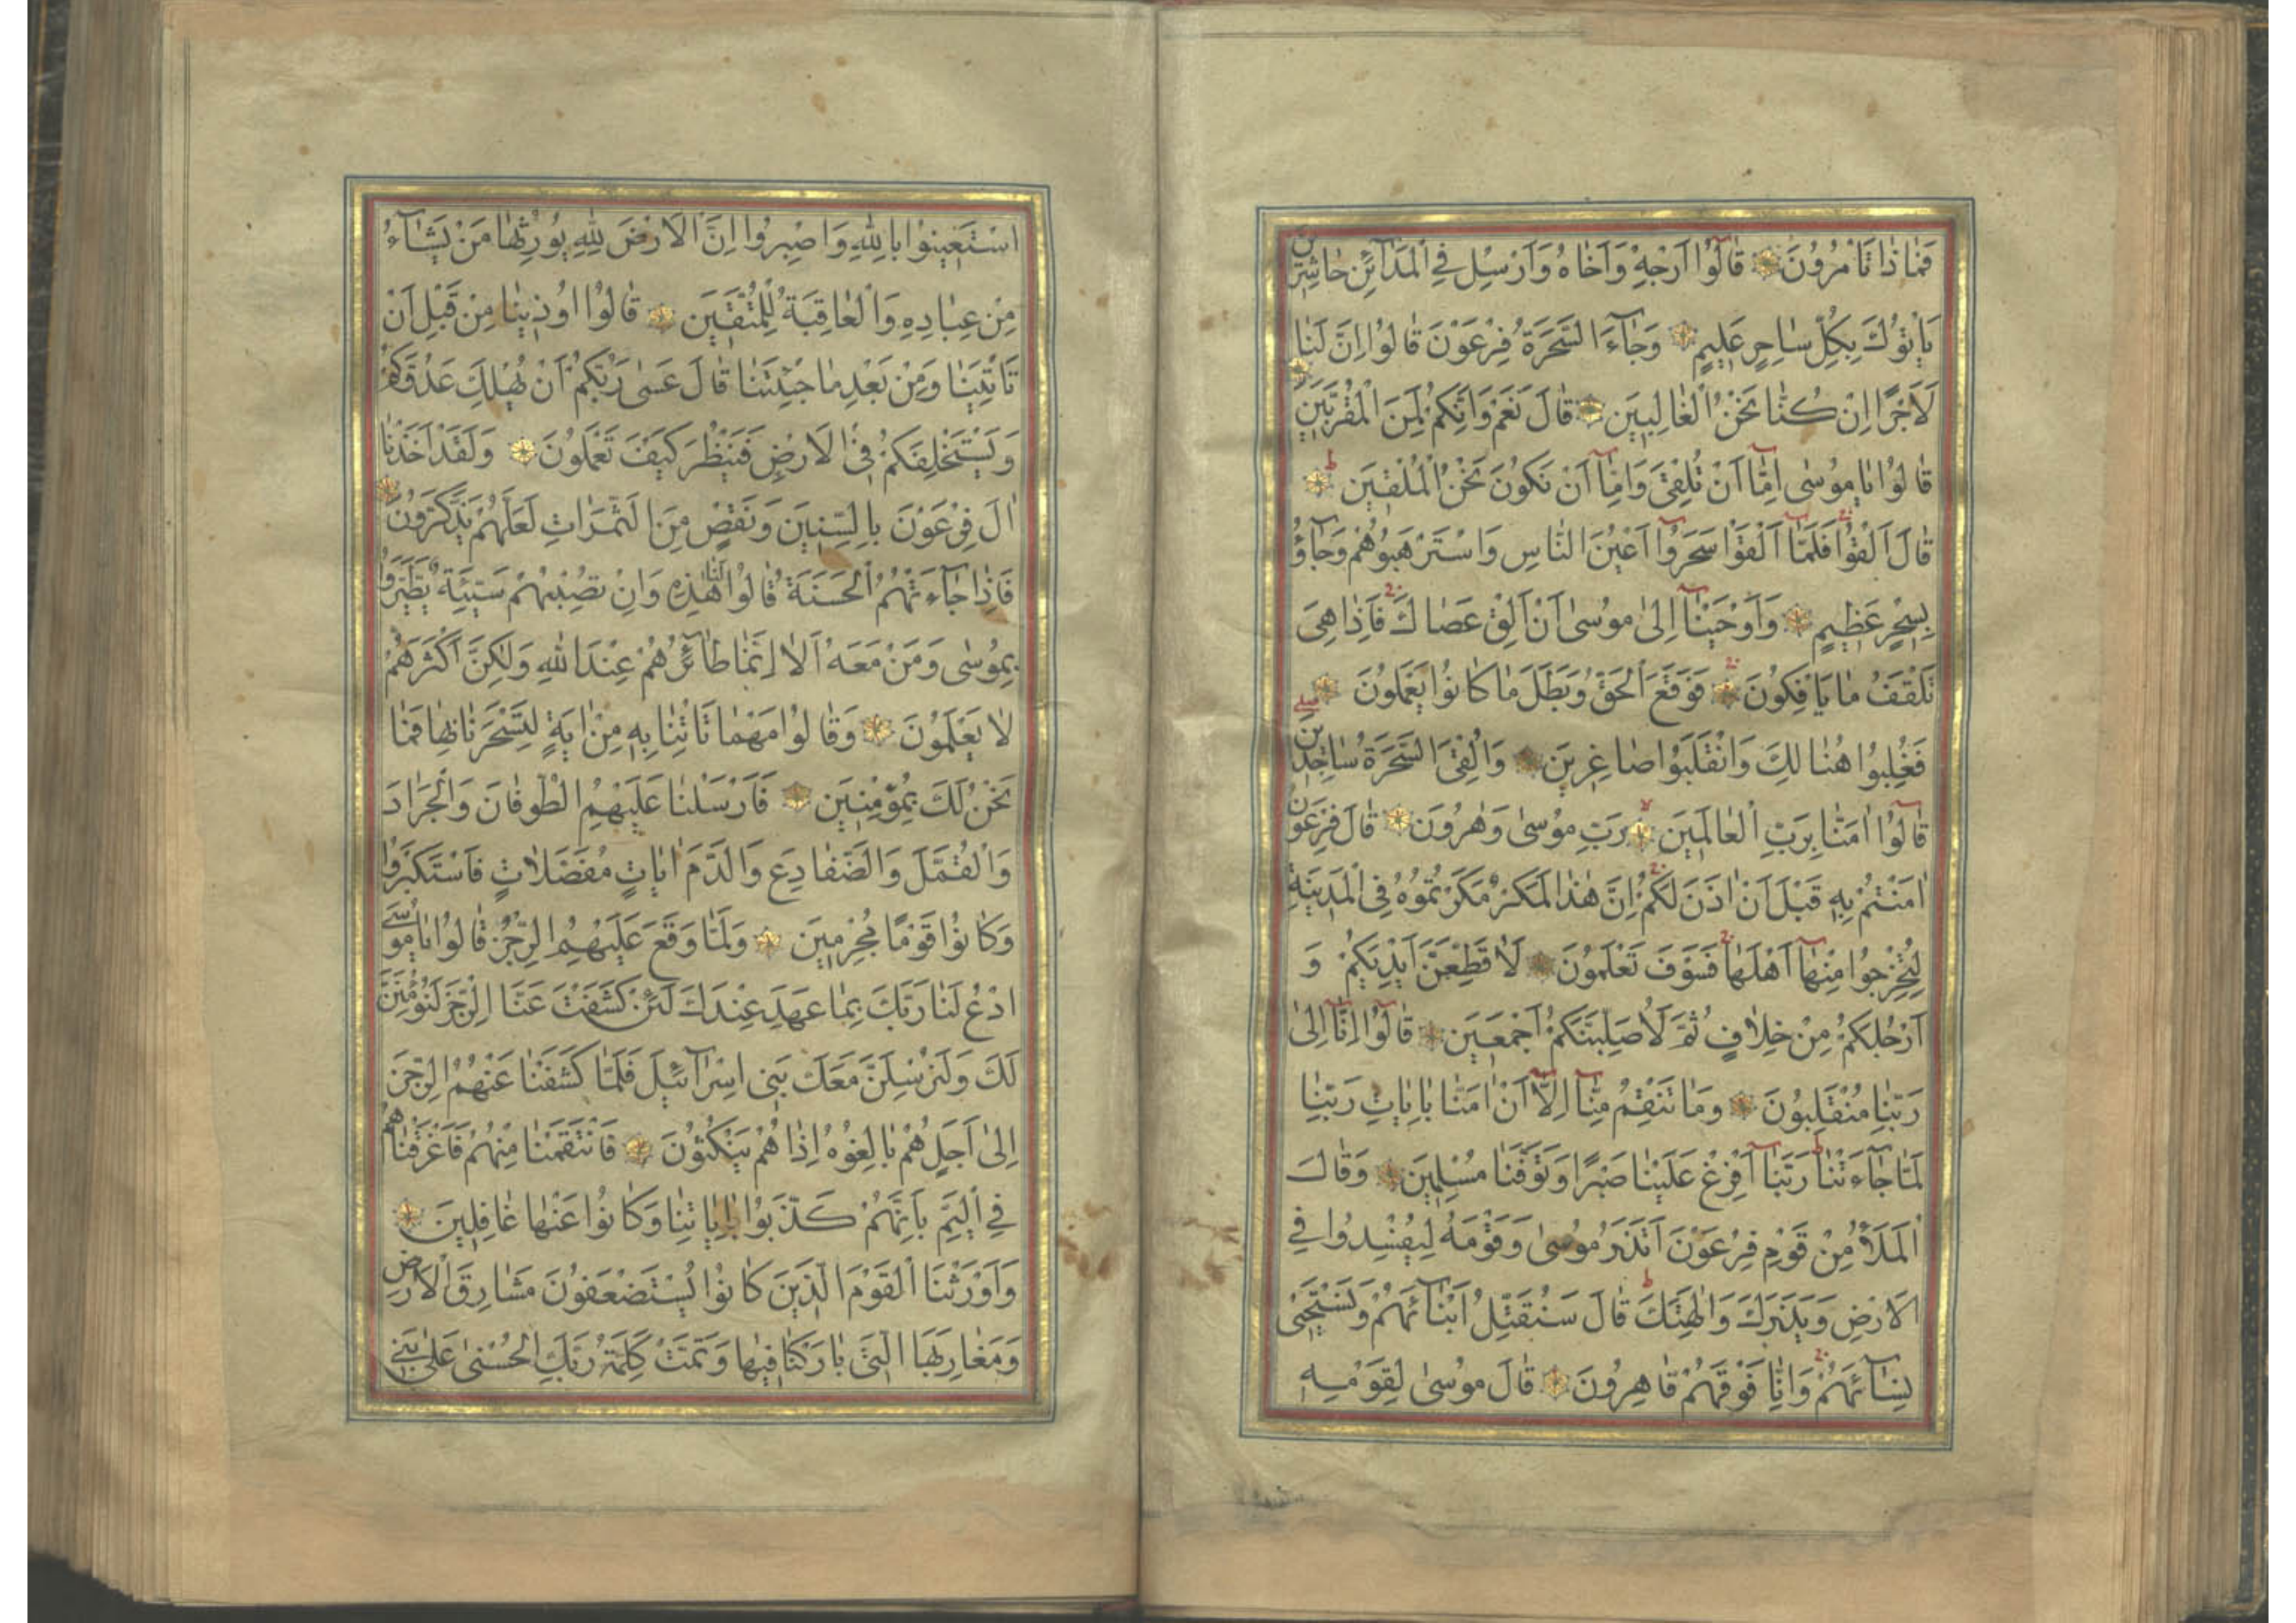 فَمَاذَا تَأْمُرُونَ قَالُوا اَرْجِهْ وَاَخَاهُ وَاَرْسِلْ فِي الْمَدَائِنِ حَاشِرِينَ
يَأْتُوكَ بِكُلِّ سَاحِرٍ عَلِيمٍ وَجَاءَ السَّحَرَةُ فِرْعَوْنَ قَالُوا اِنَّ لَنَا
لَاَجْرًا اِنْ كُنَّا نَحْنُ الْغَالِبِينَ قَالَ نَعَمْ وَاِنَّكُمْ لَمِنَ الْمُقَرَّبِينَ
قَالُوا يَامُوسٰى اِمَّا اَنْ تُلْقِيَ وَاِمَّا اَنْ نَكُونَ نَحْنُ الْمُلْقِينَ
قَالَ اَلْقُوا فَلَمَّا اَلْقَوْا سَحَرُوا اَعْيُنَ النَّاسِ وَاسْتَرْهَبُوهُمْ وَجَاؤُ
بِسِحْرٍ عَظِيمٍ وَاَوْحَيْنَا اِلٰى مُوسٰى اَنْ اَلْقِ عَصَاكَ فَاِذَا هِيَ
تَلْقَفُ مَا يَاْفِكُونَ فَوَقَعَ الْحَقُّ وَبَطَلَ مَا كَانُوا يَعْمَلُونَ
فَغُلِبُوا هُنَالِكَ وَانْقَلَبُوا صَاغِرِينَ وَاُلْقِيَ السَّحَرَةُ سَاجِدِينَ
قَالُوا اٰمَنَّا بِرَبِّ الْعَالَمِينَ رَبِّ مُوسٰى وَهٰرُونَ قَالَ فِرْعَوْنُ
اٰمَنْتُمْ بِهِ قَبْلَ اَنْ اٰذَنَ لَكُمْ اِنَّ هٰذَا لَمَكْرٌ مَكَرْتُمُوهُ فِي الْمَدِينَةِ
لِتُخْرِجُوا مِنْهَا اَهْلَهَا فَسَوْفَ تَعْلَمُونَ لَاُقَطِّعَنَّ اَيْدِيَكُمْ وَ
اَرْجُلَكُمْ مِنْ خِلَافٍ ثُمَّ لَاُصَلِّبَنَّكُمْ اَجْمَعِينَ قَالُوا اِنَّا اِلٰى
رَبِّنَا مُنْقَلِبُونَ وَمَا تَنْقِمُ مِنَّا اِلَّا اَنْ اٰمَنَّا بِاٰيَاتِ رَبِّنَا
لَمَّا جَاءَتْنَا رَبَّنَا اَفْرِغْ عَلَيْنَا صَبْرًا وَتَوَفَّنَا مُسْلِمِينَ وَقَالَ
الْمَلَأُ مِنْ قَوْمِ فِرْعَوْنَ اَتَذَرُ مُوسٰى وَقَوْمَهُ لِيُفْسِدُوا فِي
الْاَرْضِ وَيَذَرَكَ وَاٰلِهَتَكَ قَالَ سَنُقَتِّلُ اَبْنَائَهُمْ وَنَسْتَحْيِي
نِسَائَهُمْ وَاِنَّا فَوْقَهُمْ قَاهِرُونَ قَالَ مُوسٰى لِقَوْمِهِ
اسْتَعِينُوا بِاللّٰهِ وَاصْبِرُوا اِنَّ الْاَرْضَ لِلّٰهِ يُورِثُهَا مَنْ يَشَاءُ
مِنْ عِبَادِهِ وَالْعَاقِبَةُ لِلْمُتَّقِينَ قَالُوا اُوذِينَا مِنْ قَبْلِ اَنْ
تَأْتِيَنَا وَمِنْ بَعْدِ مَا جِئْتَنَا قَالَ عَسٰى رَبُّكُمْ اَنْ يُهْلِكَ عَدُوَّكُمْ
وَيَسْتَخْلِفَكُمْ فِي الْاَرْضِ فَيَنْظُرَ كَيْفَ تَعْمَلُونَ وَلَقَدْ اَخَذْنَا
اٰلَ فِرْعَوْنَ بِالسِّنِينَ وَنَقْصٍ مِنَ الثَّمَرَاتِ لَعَلَّهُمْ يَذَّكَّرُونَ
فَاِذَا جَاءَتْهُمُ الْحَسَنَةُ قَالُوا لَنَا هٰذِهِ وَاِنْ تُصِبْهُمْ سَيِّئَةٌ يَطَّيَّرُوا
بِمُوسٰى وَمَنْ مَعَهُ اَلَا اِنَّمَا طَائِرُهُمْ عِنْدَ اللّٰهِ وَلٰكِنَّ اَكْثَرَهُمْ
لَا يَعْلَمُونَ وَقَالُوا مَهْمَا تَاْتِنَا بِهِ مِنْ اٰيَةٍ لِتَسْحَرَنَا بِهَا فَمَا
نَحْنُ لَكَ بِمُؤْمِنِينَ فَاَرْسَلْنَا عَلَيْهِمُ الطُّوفَانَ وَالْجَرَادَ
وَالْقُمَّلَ وَالضَّفَادِعَ وَالدَّمَ اٰيَاتٍ مُفَصَّلَاتٍ فَاسْتَكْبَرُوا
وَكَانُوا قَوْمًا مُجْرِمِينَ وَلَمَّا وَقَعَ عَلَيْهِمُ الرِّجْزُ قَالُوا يَامُوسَى
ادْعُ لَنَا رَبَّكَ بِمَا عَهِدَ عِنْدَكَ لَئِنْ كَشَفْتَ عَنَّا الرِّجْزَ لَنُؤْمِنَنَّ
لَكَ وَلَنُرْسِلَنَّ مَعَكَ بَنِي اِسْرَائِيلَ فَلَمَّا كَشَفْنَا عَنْهُمُ الرِّجْزَ
اِلٰى اَجَلٍ هُمْ بَالِغُوهُ اِذَا هُمْ يَنْكُثُونَ فَانْتَقَمْنَا مِنْهُمْ فَاَغْرَقْنَاهُمْ
فِي الْيَمِّ بِاَنَّهُمْ كَذَّبُوا بِاٰيَاتِنَا وَكَانُوا عَنْهَا غَافِلِينَ
وَاَوْرَثْنَا الْقَوْمَ الَّذِينَ كَانُوا يُسْتَضْعَفُونَ مَشَارِقَ الْاَرْضِ
وَمَغَارِبَهَا الَّتِي بَارَكْنَا فِيهَا وَتَمَّتْ كَلِمَةُ رَبِّكَ الْحُسْنٰى عَلٰى بَنِي